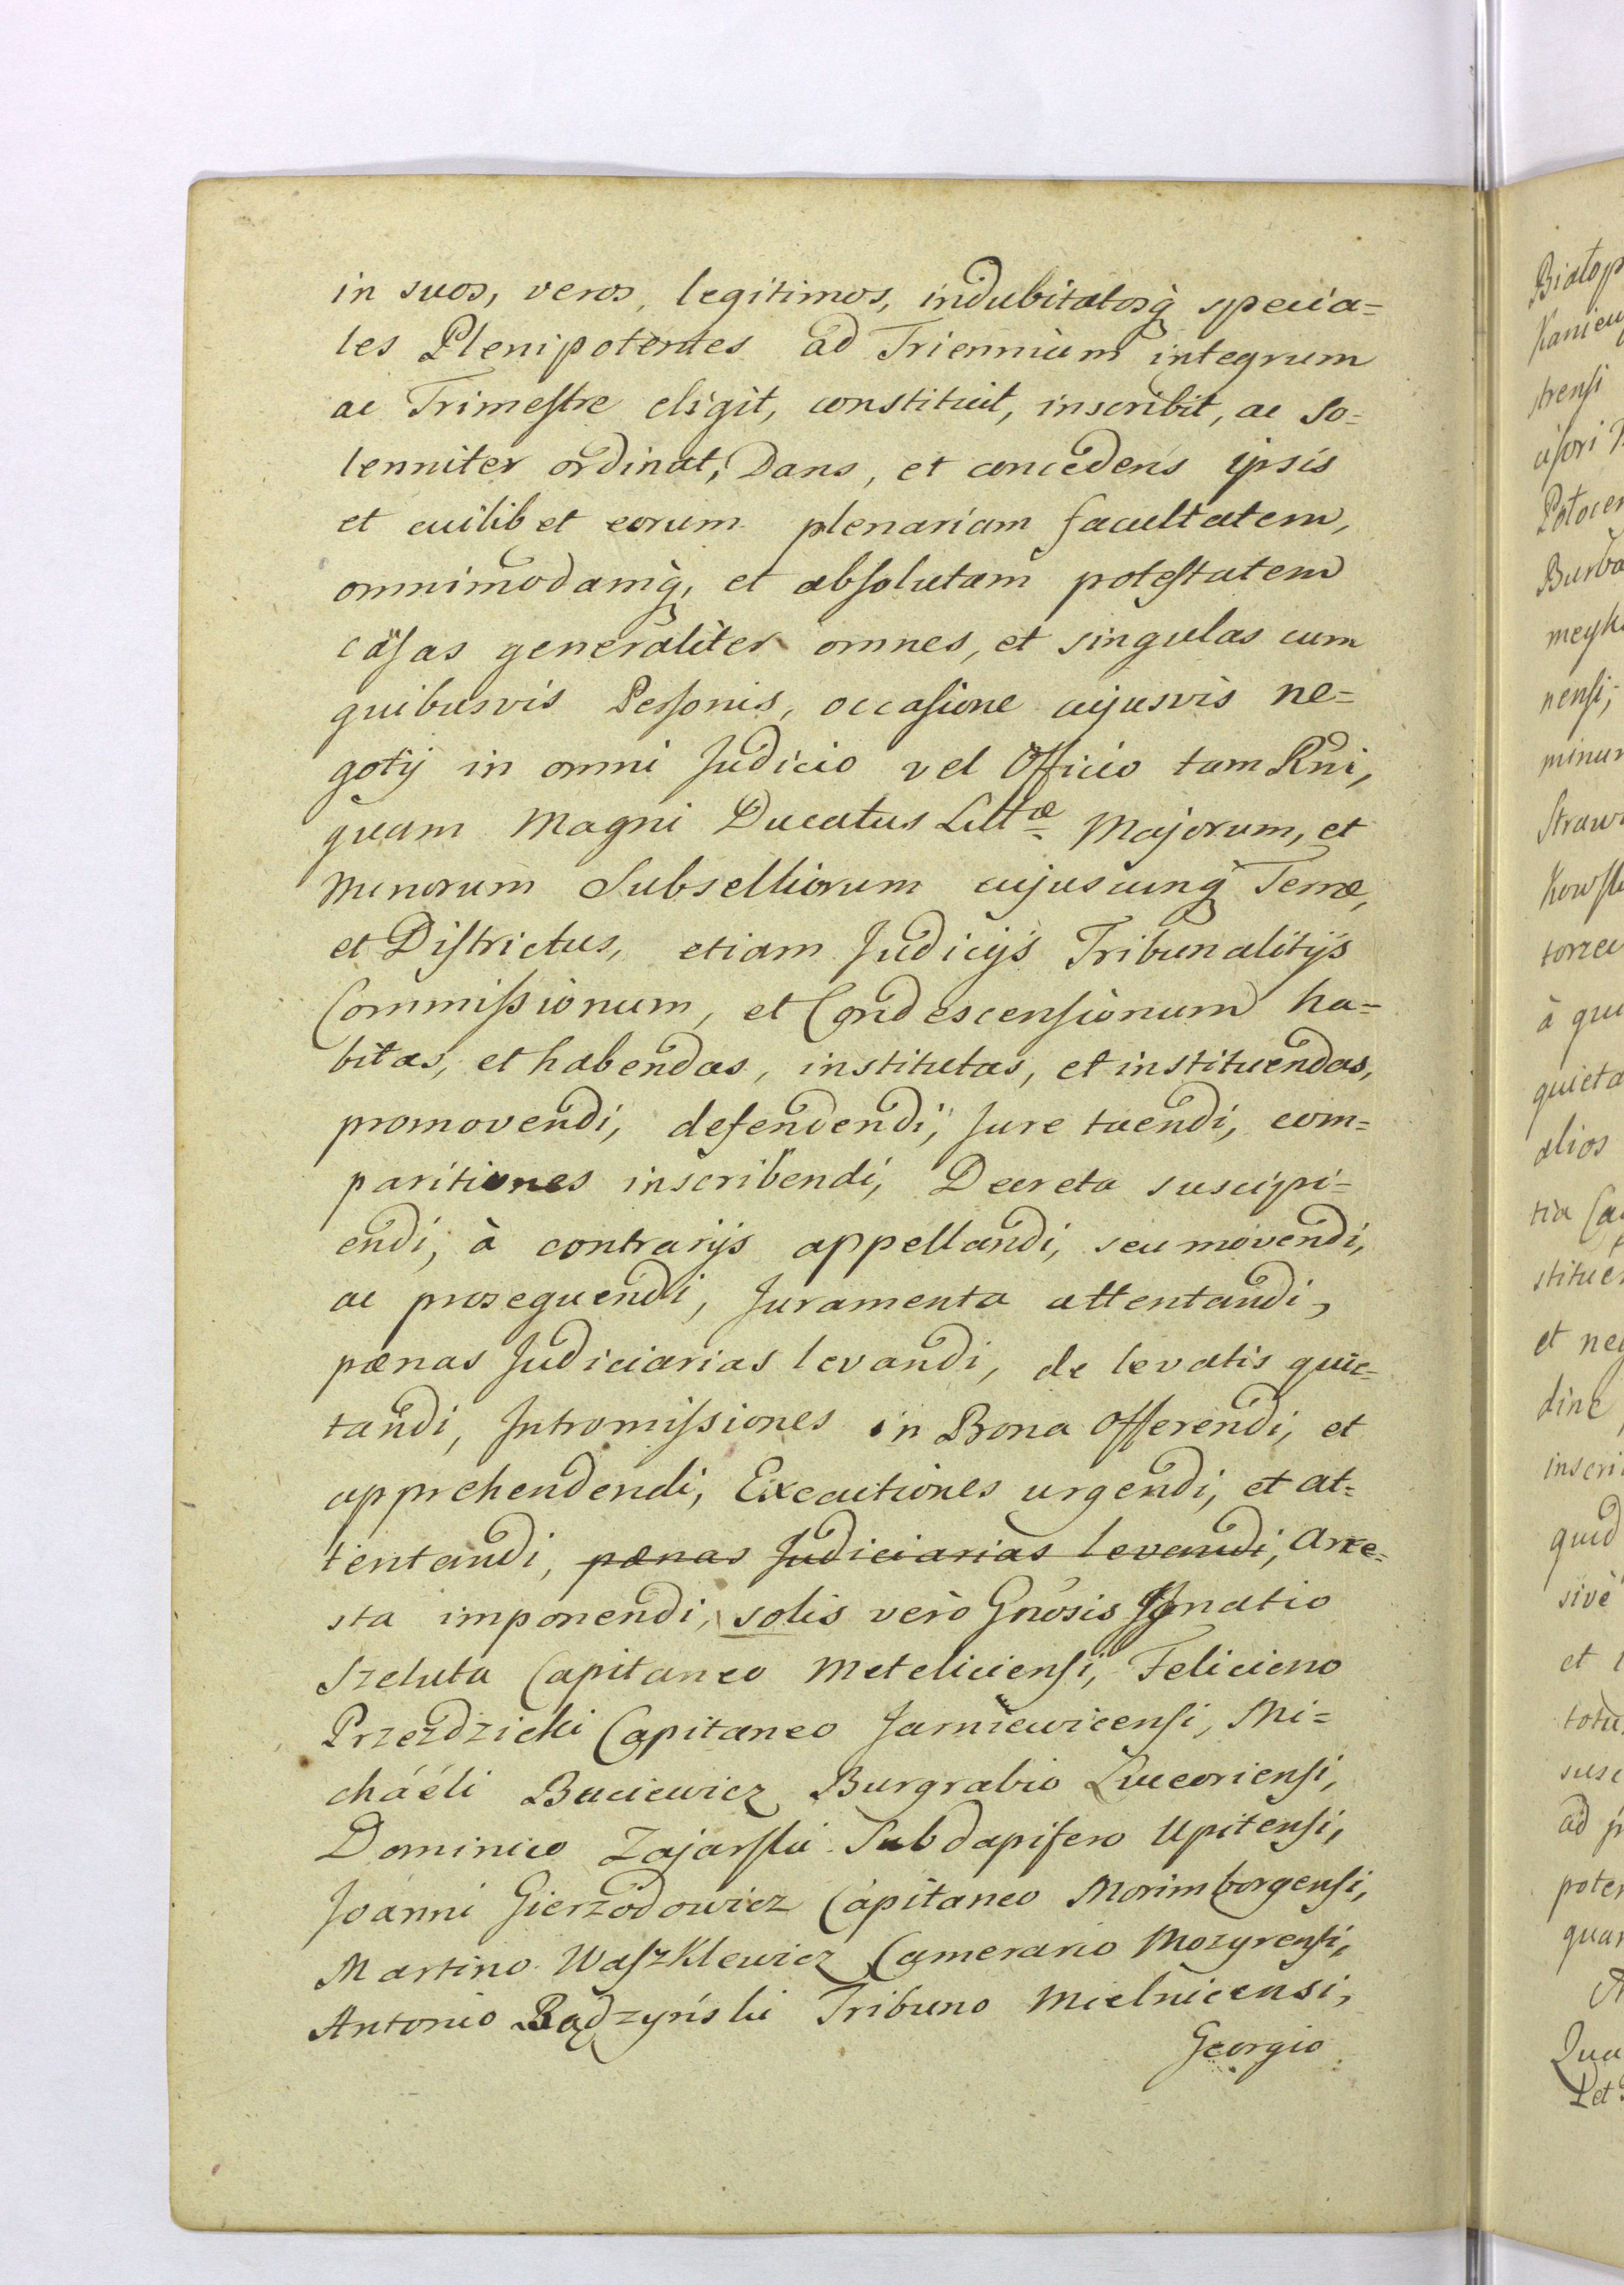 in suos, veros, legitimos, indubitatosq̀ specia=
les Plenipotentes ad Triennium integrum
ac Trimeſtre eligit, constituit, inscribit, ac So=
lenniter ordinat; Dans, et concedens ipsis
et cuilibet eorum plenariam facultatem,
omnimodamq̀, et abſolutam poteſtatem
cäſas generaliter omnes, et singulas cum
quibusvis Perſonis, occaſione cujusvis ne=
gotij in omni Judicio vel Officio tam Rni,
quam Magni Ducatus Littæ Majorum, et
Minorum Subselliorum cujuscunq̀ Terræ,
et Diſtrictus, etiam Judicijs Tribunalitijs
Commiſsionum, et Condescenſionum ha=
bitas, et habendas, institutas, et instituendas,
promovendi, defendendi, Jure tuendi, com=
paritiones inscribendi, Decreta suscipi=
endi, à contrarijs appellandi, seu movendi,
ac prosequendi, Juramenta attentandi,
pœnas Judiciarias levandi, de levatis quie=
tandi, Intromiſsiones in Bona Offerendi, et
apprehendendi, Executiones urgendi, et at=
tentandi, pœnas Judiciarias levandi, Arre=
sta imponendi, solis verò Gnosis Ignatio
Szeluta Capitaneo Meteliciensi, Feliciano
Przezdzicki Capitaneo Jamiewicenſi, Mi=
cháéli Baciewicz Burgrabio Luceorienſi,
Dominico Zajarſki Subdapifero Upitenſi,
Joánni Gierzodowicz Capitaneo Morimborgenſi,
Martino Waſzklewicz Camerario Mozyrenſi,
Antonio Bądzyński Tribuno Mielnicensi,
Georgio